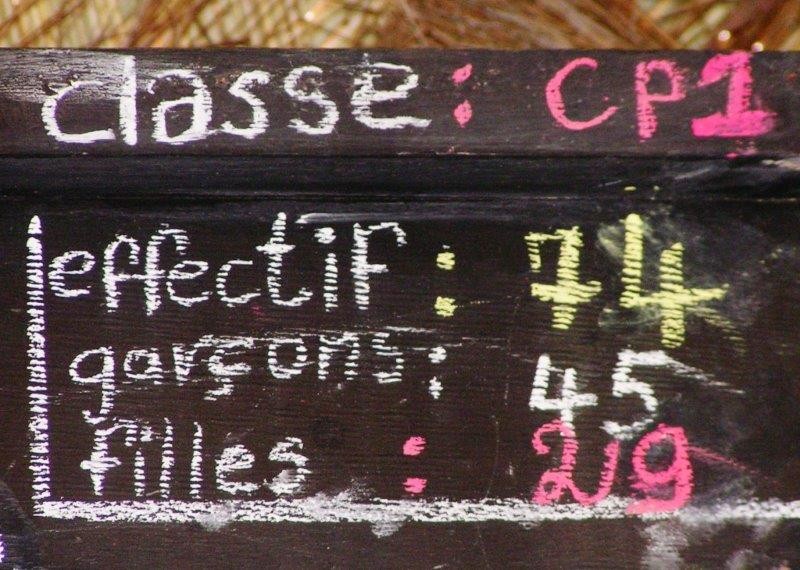 classe : CP1
effectif : 74
garçons : 45
filles : 29